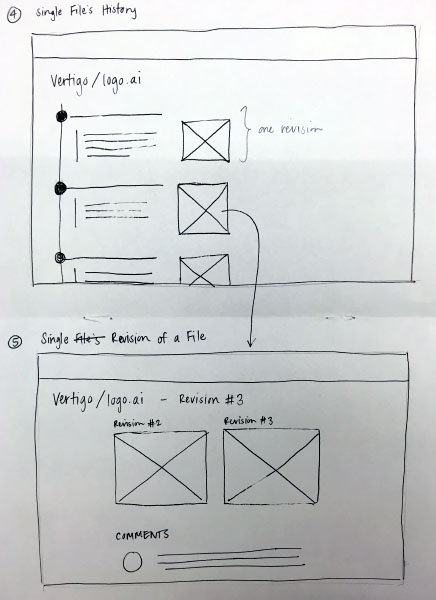 4 Single File's History
Vertigo/logo.ai
one revision
5 Single File's Revision of a File
Vertigo/logo.ai - Revision #3
Revision #2 Revision #3
COMMENTS